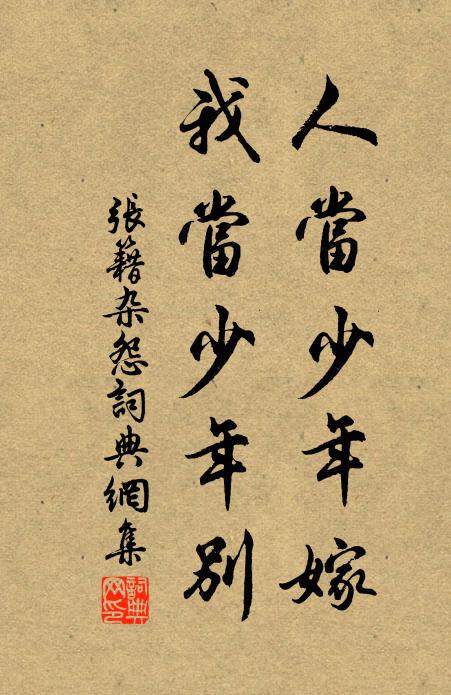 人當少年嫁
我當少年別
張籍杂怨詞典網集
詞典網印